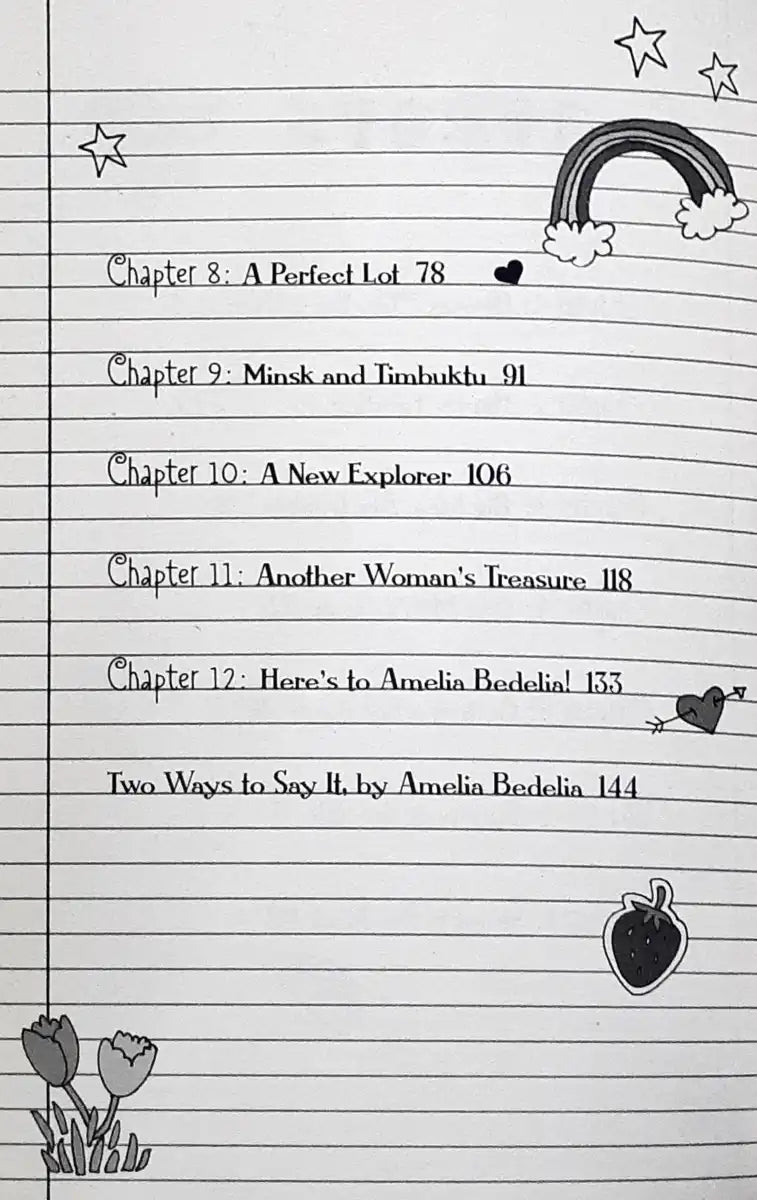 Chapter 8: A Perfect Lot 78
Chapter 9: Minsk and Timbuktu 91
Chapter 10: A New Explorer 106
Chapter 11: Another Woman's Treasure 118
Chapter 12: Here's to Amelia Bedelia! 133
Two Ways to Say It, by Amelia Bedelia 144